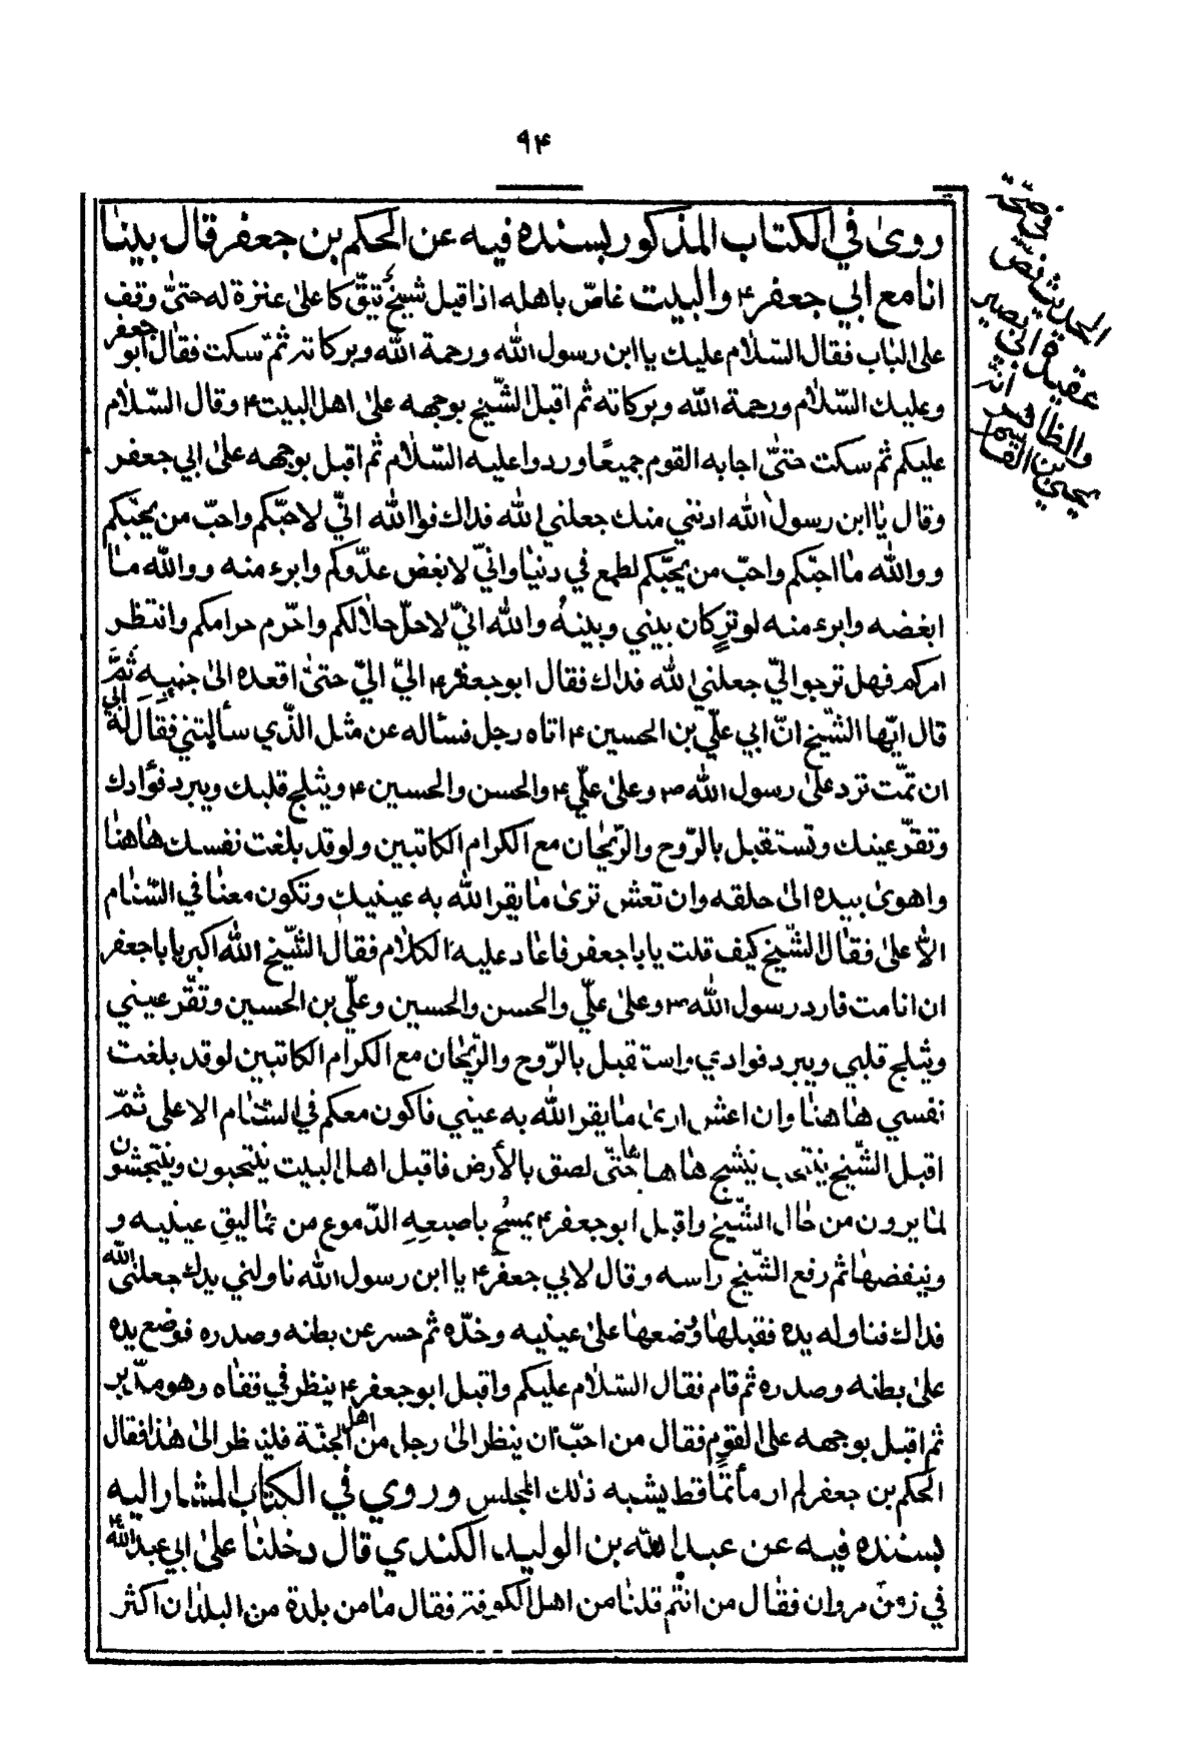 ۹۴
روى في الكتاب المذكور بسنده فيه عن الحكم بن جعفر قال بينا
انا مع ابي جعفر ۴ والبيت غاصّ باهله اذا قبل شيخ يتوّكا على عنزة له حتىّ وقف
على الباب فقال السّلام عليك يا ابن رسول الله ورحمة الله وبركاته ثمّ سكت فقال ابو جعفر
وعليك السّلام ورحمة الله وبركاته ثم اقبل الشّيخ بوجهه على اهل البيت ۴ وقال السّلام
عليكم ثم سكت حتىّ اجابه القوم جميعًا وردوا عليه السّلام ثم اقبل بوجهه على ابي جعفر
وقال يا ابن رسول الله ادنني منك جعلني الله فداك فوالله انّي لاحبّكم واحبّ من يحبّكم
ووالله ما احبّكم واحبّ من يحبّكم لطمع في دنيا وانيّ لابغض عدّوكم وابرء منه ووالله ما
ابغضه وابرء منه لوترٍ كان بيني وبينهُ والله انيّ لاحلّ حلالكم واحّرم حرامكم وانتظر
امركم فهل ترجوا ليّ جعلني الله فداك فقال ابو جعفر ۴ اليّ اليّ حتىّ اقعده الىٰ جنبهِ ثمَّ
قال ايّها الشّيخ انّ ابي علّي بن الحسين ۴ اتاه رجل فسأله عن مثل الذّي سألتني فقال لهُ ابي
ان تمّت ترد على رسول الله ص وعلىٰ علّي ۴ والحسن والحسين ۴ ويثلج قلبك ويبرد فؤادك
وتقرّ عينك وتستقبل بالرّوح والرّيحان مع الكرام الكاتبين ولو قد بلغت نفسك هاهنا
واهوىٰ بيده الىٰ حلقه وان تعش ترىٰ ما يقر الله به عينيك وتكون معنا في السّنام
الاعلىٰ فقال الشّيخ كيف قلت يا باجعفر فاعاد عليه الكلام فقال الشّيخ الله اكبر يا باجعفر
ان انا مت فارد رسول الله ص وعلىٰ علّي والحسن والحسين وعلّي بن الحسين وتقّر عيني
ويثلج قلبي ويبرد فوادي واستقبل بالرّوح والرّيحان مع الكرام الكاتبين لو قد بلغت
نفسي هاهنا وان اعش ارىٰ ما يقر الله به عيني فاكون معكم في السّنام الاعلى ثمّ
اقبل الشّيخ ينتحب ينشج هاها ها حتّى لصق بالأرض فاقبل اهل البيت ينتحبون وينتجشون
لما يرون من حال الشّيخ واقبل ابو جعفر ۴ يمسح باصبعهِ الدّموع من حماليقِ عينيه و
وينفضها ثم رفع الشّيخ راسه وقال لابي جعفر ۴ يا ابن رسول الله ناولني يدك جعلني الله
فداك فناوله يده فقبلها وضعها علىٰ عينيه وخدّه ثم حسر عن بطنه وصدره فوضع يده
على بطنه وصدره ثم قام فقال السّلام عليكم واقبل ابو جعفر ۴ ينظر في قفاه وهو مدّبر
ثم اقبل بوجهه على القوم فقال من احبّ ان ينظر الىٰ رجل من اهل الجنّة فلينظر الىٰ هذا فقال
الحكم بن جعفر لم ار مأتمًا قط يشبه ذلك المجلس وروي في الكتاب المشار اليه
بسنده فيه عن عبد الله بن الوليد الكندي قال دخلنا علىٰ ابي عبد الله ۴
في زمن مروان فقال من انتم قلنا من اهل الكوفة فقال ما من بلدة من البلدان اكثر
الحديث نصّ
عقيدة ابي بصير
والظاهر انّه
يحيى بن القاسم